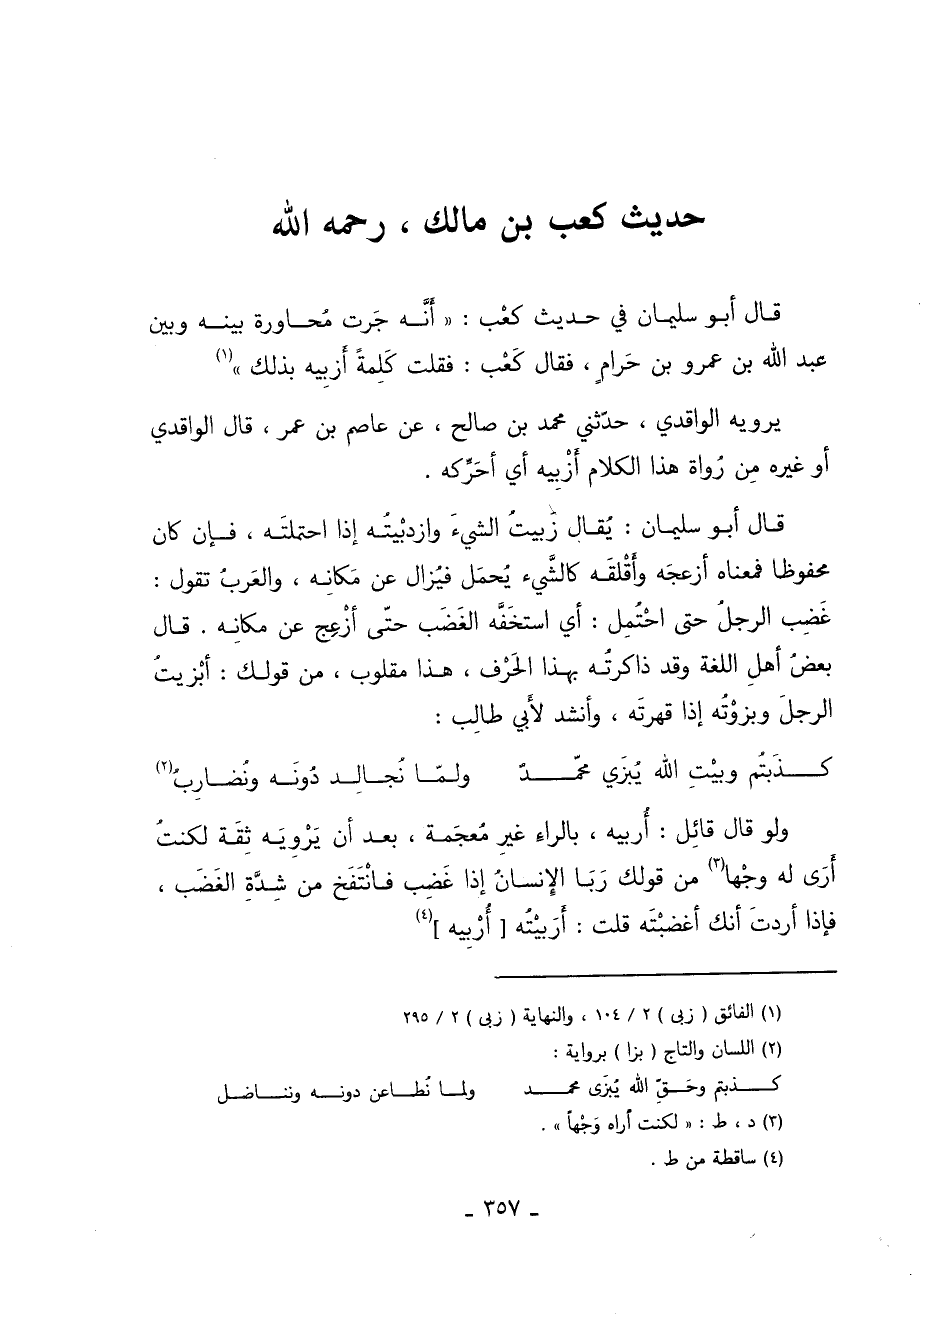 حديث كعب بن مالك ، رحمه الله
قال أبو سليمان في حديث كعْب : « أنَّه جَرت مُحاورة بينه وبين
عبد الله بن عمرو بن حَرامٍ ، فقال كَعْب : فقلت كَلِمةً أزبِيه بذلك »(١)
يرويه الواقدي ، حدّثني محمد بن صالح ، عن عاصم بن عمر ، قال الواقدي
أو غيره مِن رُواة هذا الكلام أزْبِيه أي أحَرِّكه .
قال أبو سليمان : يُقال زَبيتُ الشيءَ وازدبْيتُه إذا احتملتَه ، فإن كان
محفوظا فمعناه أزعجَه وأَقْلقَه كالشَّيء يُحمَل فيُزال عن مَكانِه ، والعَربُ تقول :
غَضِب الرجلُ حتى احْتُمِل : أي استخَفَّه الغَضَب حتّى أزْعِج عن مكانِه . قال
بعضُ أهلِ اللغة وقد ذاكرتُه بهذا الحَرْف ، هذا مقلوب ، من قولِك : أبْزيتُ
الرجلَ وبزوْتُه إذا قهرتَه ، وأنشد لأَبي طالِب :
كذَبتُم وبيْتِ الله يُبزَي محمّدٌ ولمّا نُجالِد دُونَه ونُضارِبُ(٢)
ولو قال قائِل : أُربيه ، بالراء غيرِ مُعجَمة ، بعد أن يَرْويَه ثِقَة لكنتُ
أَرَى له وجْها(٣) من قولك رَبَا الإِنسانُ إذا غضِب فانْتَفَخ من شِدَّةِ الغَضَب ،
فإذا أردتَ أنك أغضبْتَه قلت : أَرَبيْتُه [ أُرْبِيه ](٤)
(١) الفائق ( زبى ) ٢ / ١٠٤ ، والنهاية ( زبى ) ٢ / ٢٩٥
(٢) اللسان والتاج ( بزا ) برواية :
كذبتم وحَقِّ الله يُبزَى محمد ولما نُطاعن دونه ونناضل
(٣) د ، ط : « لكنت أراه وَجْهاً » .
(٤) ساقطة من ط .
ـ ٣٥٧ ـ